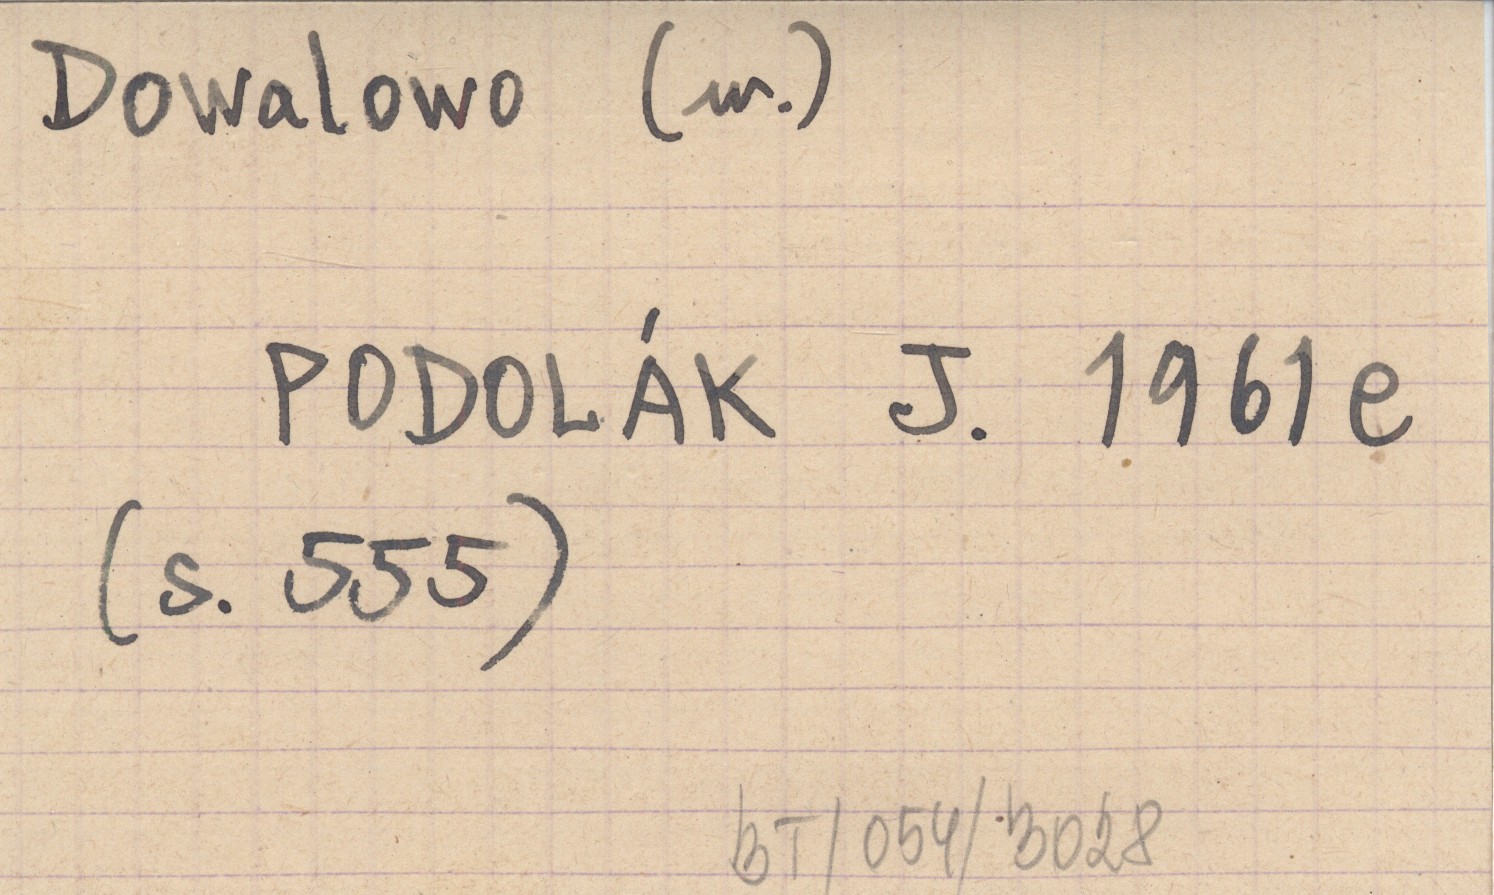 Dowalowo (m.)
PODOLÁK J. 1961e
(s. 555)
BT/054/3028